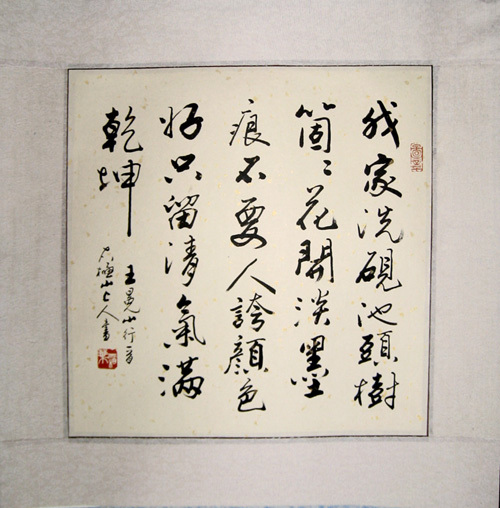 我家洗硯池頭樹
箇々花開淡墨
痕不要人誇顏色
好只留清氣滿
乾坤
王冕小行
山上人書